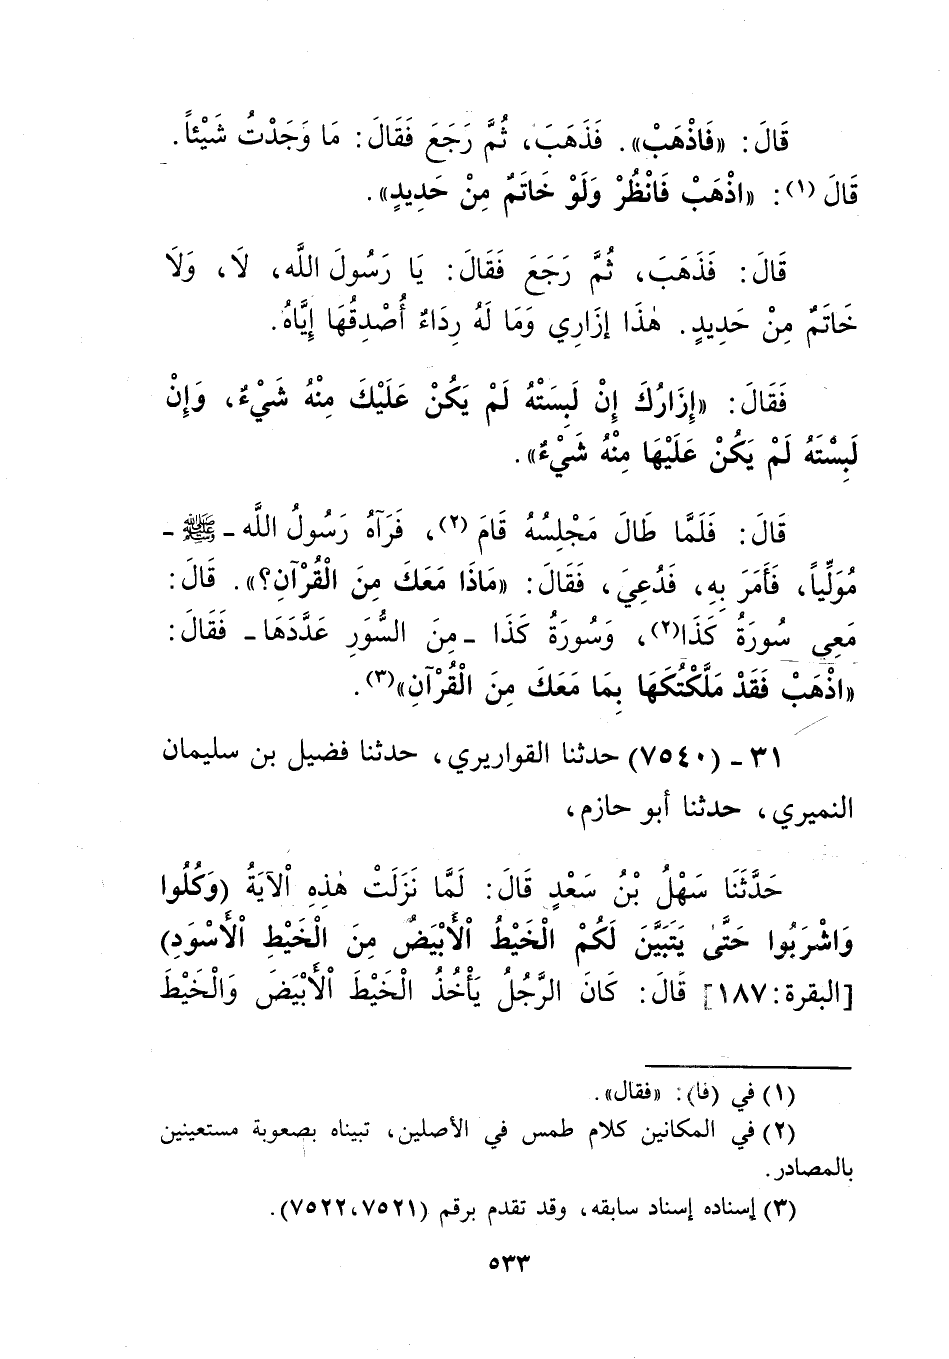 قَالَ: «فَاذْهَبْ». فَذَهَبَ، ثُمَّ رَجَعَ فَقَالَ: مَا وَجَدْتُ شَيْئاً.
قَالَ (١): «اذْهَبْ فَانْظُرْ وَلَوْ خَاتَمٌ مِنْ حَدِيدٍ».
قَالَ: فَذَهَبَ، ثُمَّ رَجَعَ فَقَالَ: يَا رَسُولَ اللَّه، لَا، وَلَا
خَاتَمٌ مِنْ حَدِيدٍ. هٰذَا إِزَارِي وَمَا لَهُ رِدَاءٌ أُصْدِقُهَا إِيَّاهُ.
فَقَالَ: «إِزَارُكَ إِنْ لَبِسَتْهُ لَمْ يَكُنْ عَلَيْكَ مِنْهُ شَيْءٌ، وَإِنْ
لَبِسْتَهُ لَمْ يَكُنْ عَلَيْهَا مِنْهُ شَيْءٌ».
قَالَ: فَلَمَّا طَالَ مَجْلِسُهُ قَامَ (٢)، فَرَآهُ رَسُولُ اللَّه ـ ﷺ ـ
مُوَلِّياً، فَأَمَرَ بِهِ، فَدُعِيَ، فَقَالَ: «مَاذَا مَعَكَ مِنَ الْقُرْآنِ؟». قَالَ:
مَعِي سُورَةُ كَذَا(٢)، وَسُورَةُ كَذَا ـ مِنَ السُّوَرِ عَدَّدَهَا ـ فَقَالَ:
«اذْهَبْ فَقَدْ مَلَّكْتُكَهَا بِمَا مَعَكَ مِنَ الْقُرْآنِ»(٣).
٣١ ـ (٧٥٤٠) حدثنا القواريري، حدثنا فضيل بن سليمان
النميري، حدثنا أبو حازم،
حَدَّثَنَا سَهْلُ بْنُ سَعْدٍ قَالَ: لَمَّا نَزَلَتْ هٰذِهِ الْآيَةُ (وَكُلُوا
وَاشْرَبُوا حَتَّىٰ يَتَبَيَّنَ لَكُمْ الْخَيْطُ الْأَبْيَضُ مِنَ الْخَيْطِ الْأَسْوَدِ)
[البقرة: ١٨٧] قَالَ: كَانَ الرَّجُلُ يَأْخُذُ الْخَيْطَ الْأَبْيَضَ وَالْخَيْطَ
(١) في (فا): «فقال».
(٢) في المكانين كلام طمس في الأصلين، تبيناه بصعوبة مستعينين
بالمصادر.
(٣) إسناده إسناد سابقه، وقد تقدم برقم (٧٥٢١، ٧٥٢٢).
٥٣٣